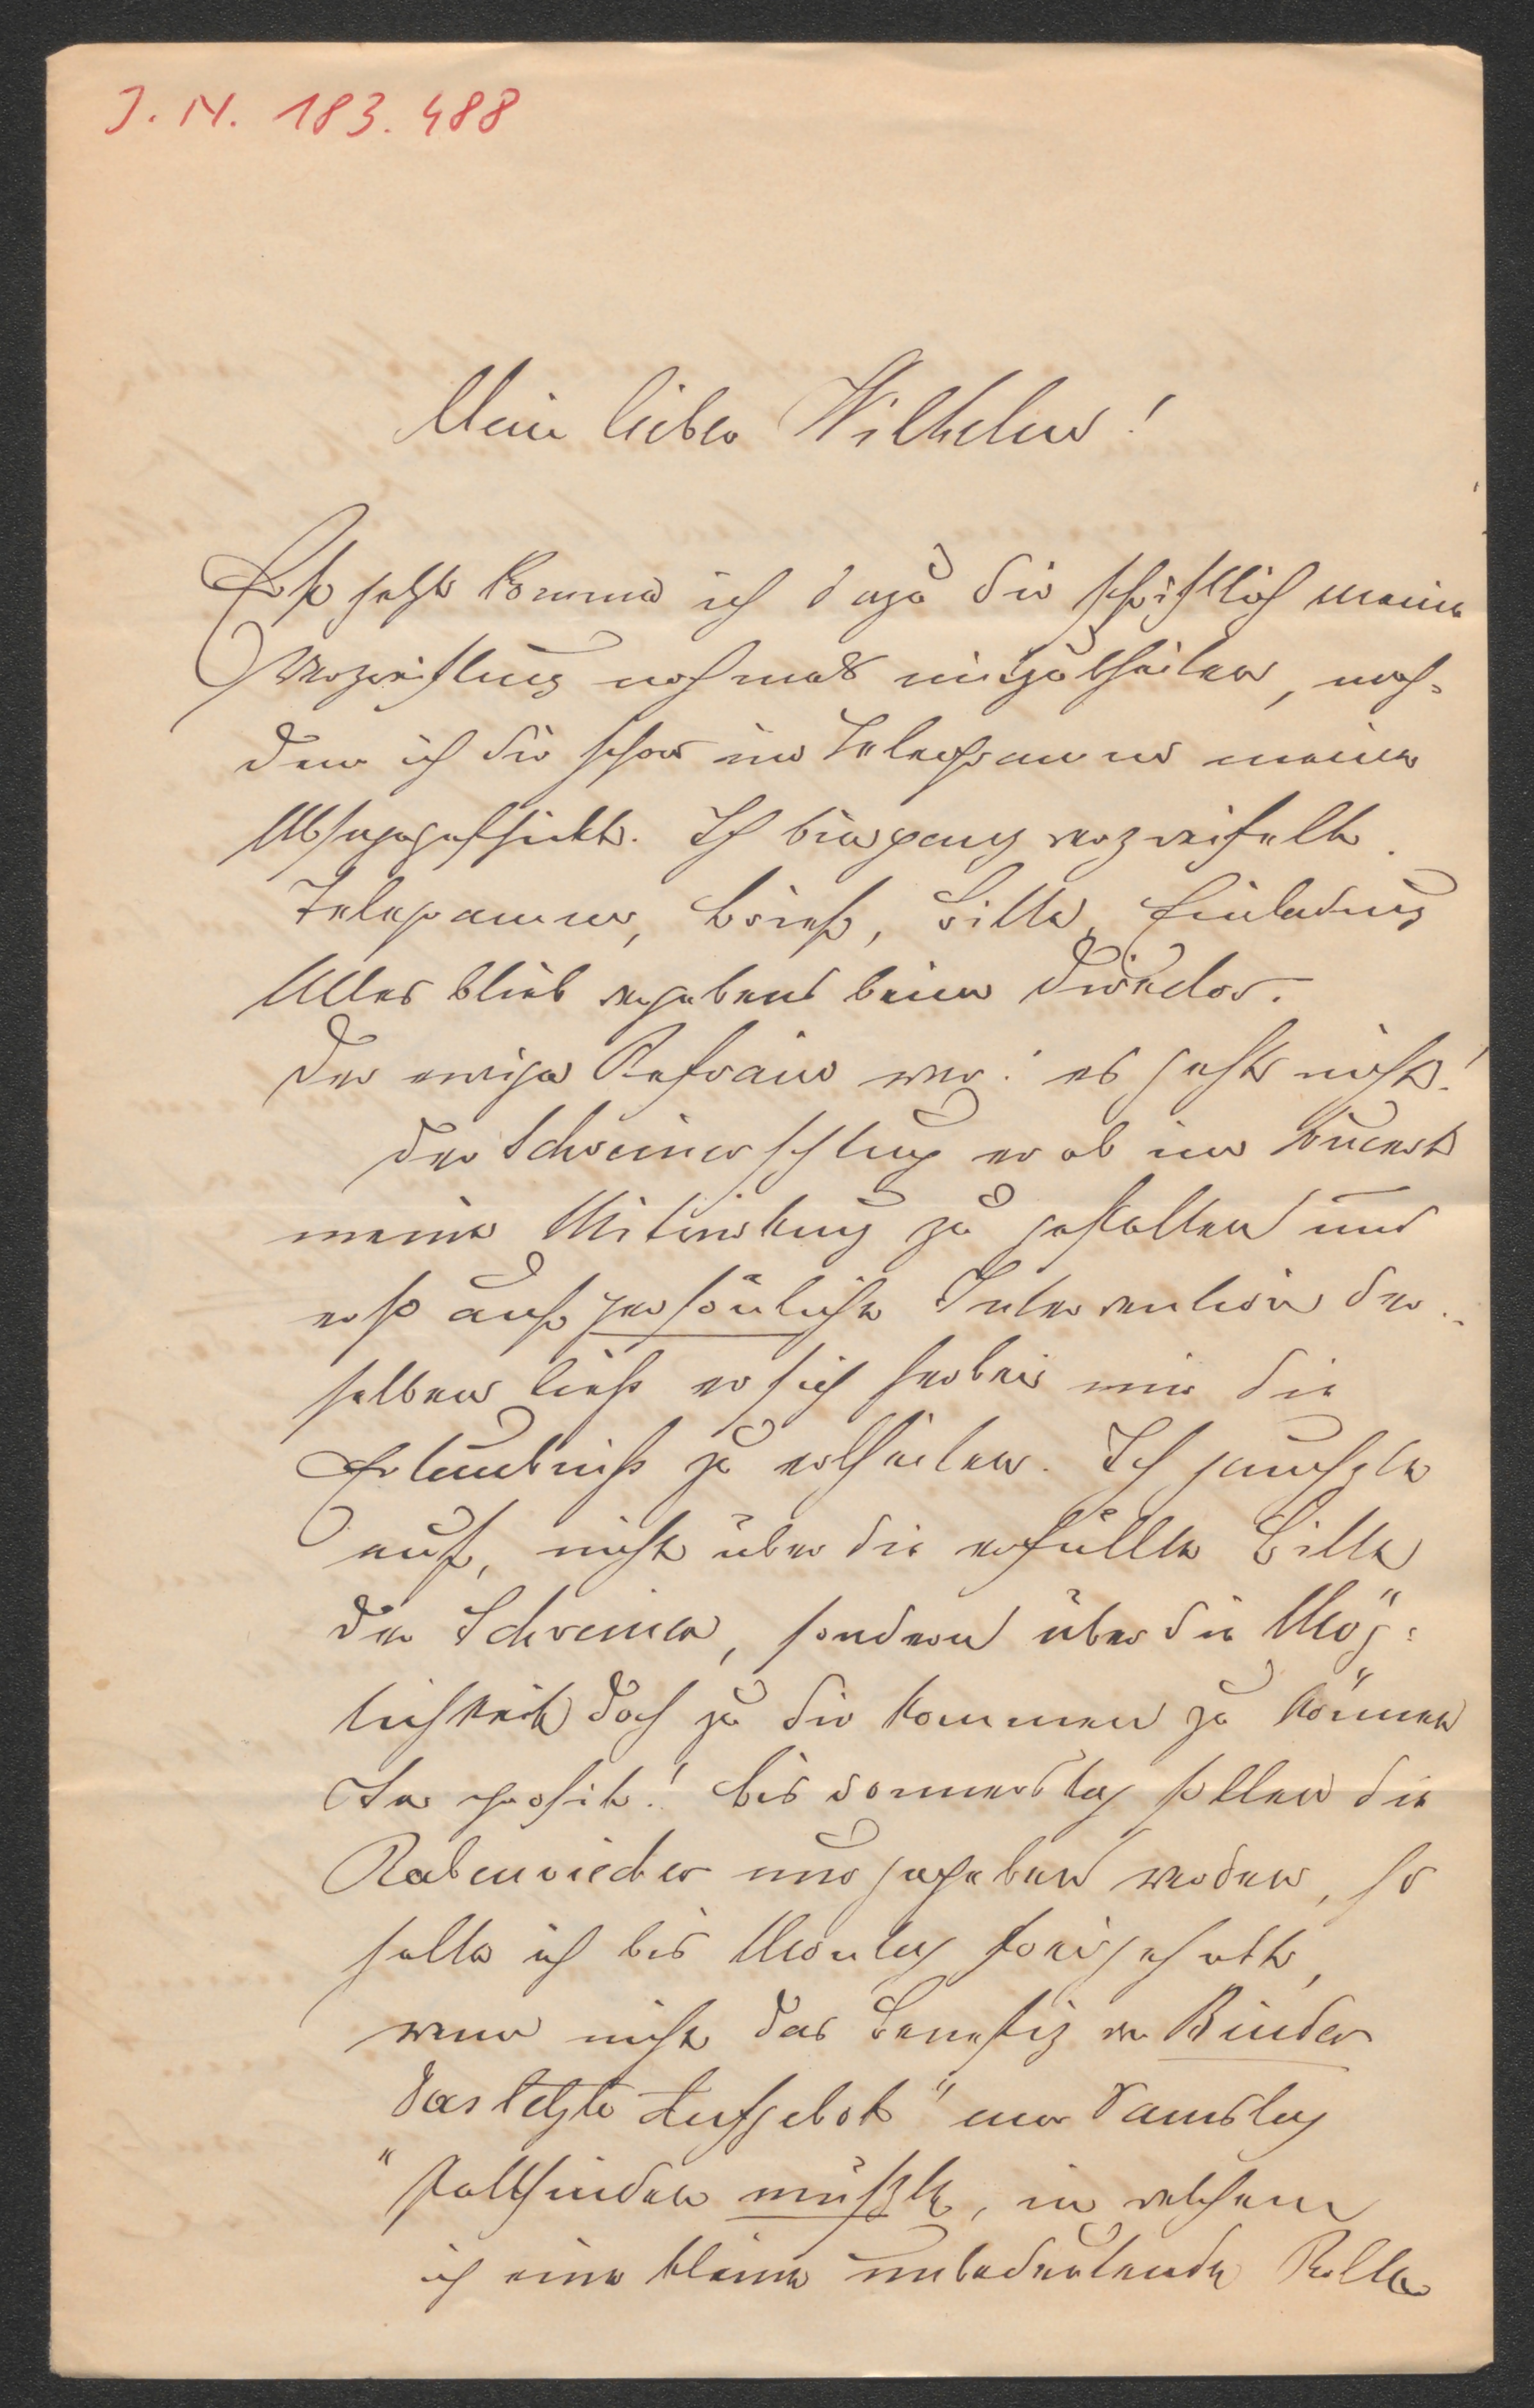 J. N. 183.488
Mein lieber Wilhelm!
Erst jetzt komme ich dazu dir schriftlich meine
Verzweiflung nochmals mitzutheilen, nach-
dem ich dir schon im Telegramm meine
Absage geschickt. Ich bin ganz verzweifelt.
Telegramm, Brief, Bitte, Einladung
Alles blieb vergebens beim Director.
Der ewige Refrain war: es geht nicht!
Der Schreiner schlug er ab im Concert
meine Mitwirkung zu gestatten und
erst auf persönliche Intervention der-
selben ließ er sich herbei mir die
Erlaubniß zu ertheilen. Ich jauchzte
auf, nicht über die erfüllte Bitte
der Schreiner, sondern über die Mög-
lichkeit doch zu dir kommen zu können
Ja prosit! Bis Donnerstag sollen die
Raben wieder nur gegeben werden, so
hätte ich bis Montag frei gehabt,
wenn nicht das Benefiz der Binder
"das letzte Aufgebot" am Samstag
stattfinden müßte, in welchem
ich eine kleine unbedeutende Rolle